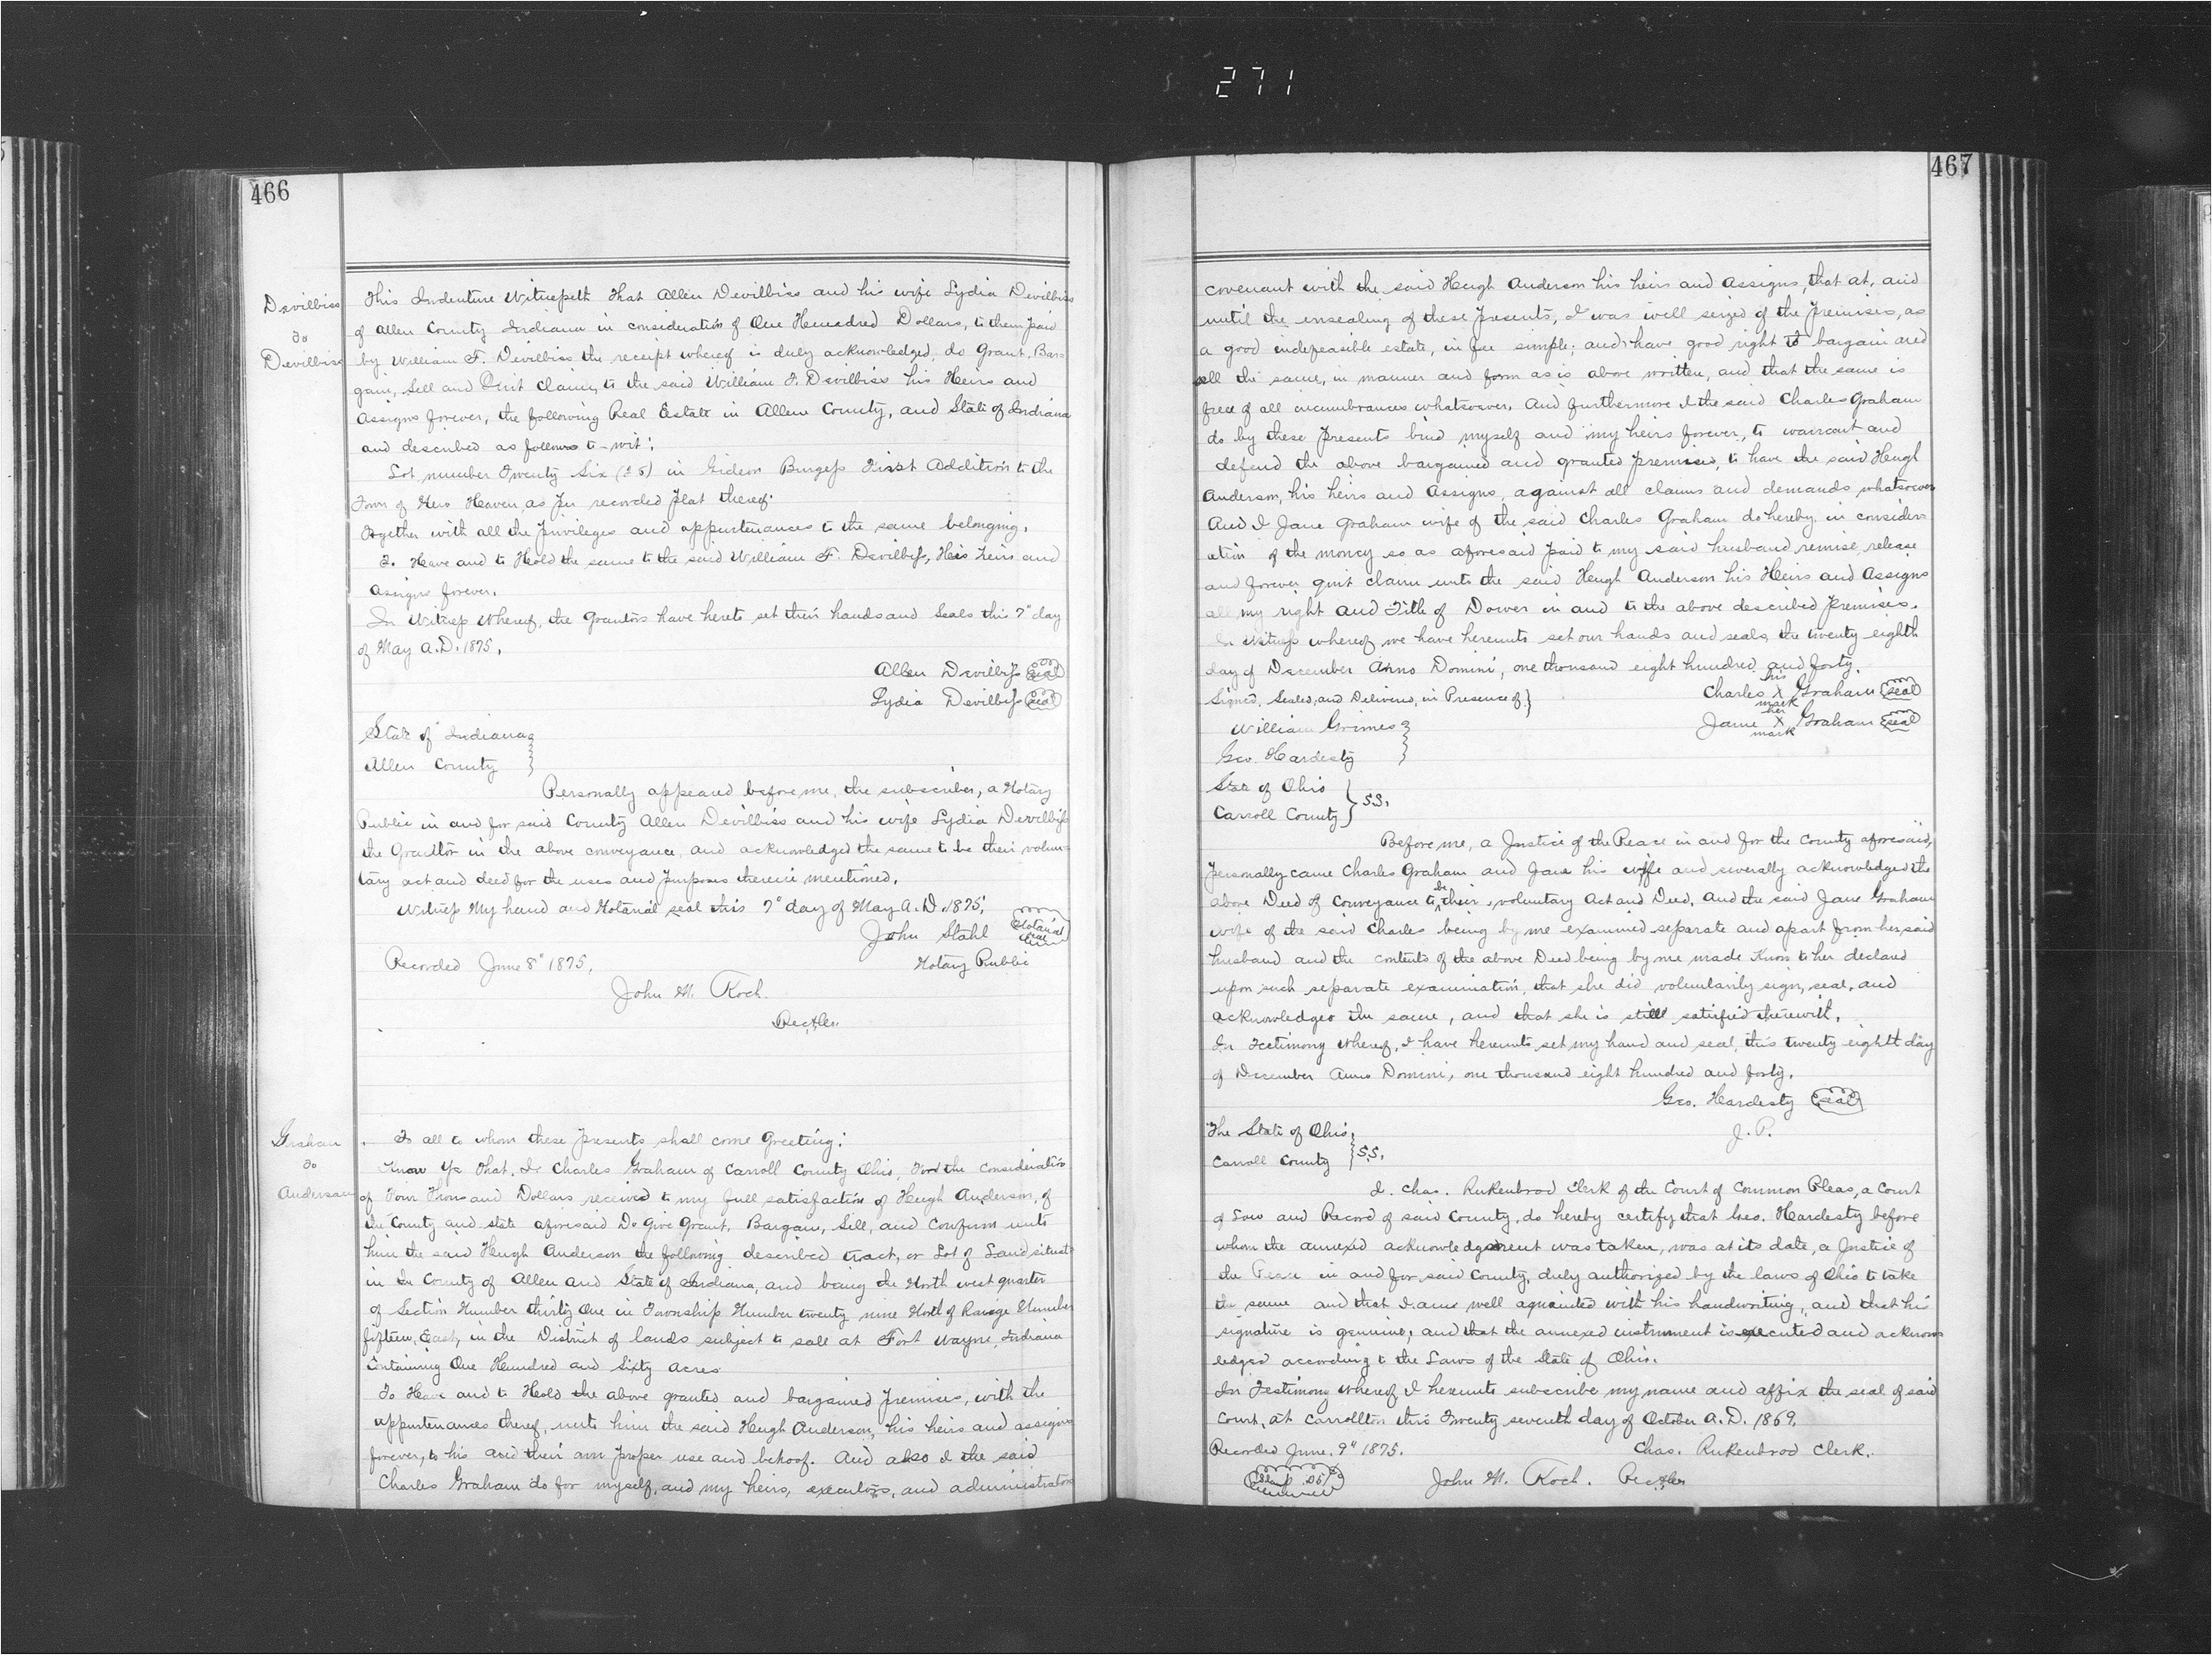 271
466
Devilbiss
to
Devilbiss
This Indenture Witnesseth That Allen Devilbiss and his wife Lydia Devilbiss
of Allen County Indiana in consideration of One Hundred Dollars, to them paid
by William F. Devilbiss the receipt whereof is duly acknowledged, do Grant, Bar-
gain, Sell and Quit claim, to the said William F. Devilbiss his Heirs and
Assigns forever, the following Real Estate in Allen County, and State of Indiana
and described as follows to-wit:
Lot number Twenty Six (26) in Gideon Burgess First Addition to the
Town of New Haven as per recorded plat thereof.
Together with all the privileges and appurtenances to the same belonging.
To Have and to Hold the same to the said William F. Devilbiss, His heirs and
assigns forever.
In Witness Whereof, the Grantors have hereto set their hands and Seals this 7" day
of May A.D. 1875.
Allen Devilbiss seal
Lydia Devilbiss seal
State of Indiana
Allen County
Personally appeared before me, the subscriber, a Notary
Public in and for said County Allen Devilbiss and his wife Lydia Devilbiss
the Grantor in the above conveyance, and acknowledged the same to be their volun-
tary act and deed for the uses and purposes therein mentioned.
Witness My hand and Notarial seal this 7" day of May A.D. 1875.
John Stahl Notarial seal
Recorded June 8" 1875. Notary Public
John M. Koch
Rec. Allen
Graham
to
Anderson
To all to whom these Presents shall come Greeting:
Know Ye That, I, Charles Graham of Carroll County Ohio, For the consideration
of Four Thousand Dollars received to my full satisfaction of Hugh Anderson, of
the County and state aforesaid Do Give Grant, Bargain, Sell, and Confirm unto
him the said Hugh Anderson the following described tract, or Lot of Land situate
in the County of Allen and State of Indiana, and being the North west quarter
of Section Number thirty One in Township Number twenty nine North of Range Number
fifteen, East, in the District of lands subject to sale at Fort Wayne, Indiana
Containing One Hundred and Sixty acres
To Have and to Hold the above granted and bargained Premises, with the
appurtenances thereof, unto him the said Hugh Anderson, his heirs and assigns
forever, to his and their own proper use and behoof. And also I the said
Charles Graham do for myself, and my heirs, executors, and administrators
467
covenant with the said Hugh Anderson his heirs and assigns, that at, and
until the ensealing of these Presents, I was well seized of the Premises, as
a good indefeasible estate, in fee simple; and have good right to bargain and
sell the same, in manner and form as is above written, and that the same is
free of all incumbrances whatsoever. And furthermore I the said Charles Graham
do by these Presents bind myself and my heirs forever, to warrant and
defend the above bargained and granted premises, to have the said Hugh
Anderson, his heirs and assigns, against all claims and demands whatsoever
And I Jane Graham wife of the said Charles Graham do hereby in consider-
ation of the money so as aforesaid paid to my said husband remise, release
and forever quit claim unto the said Hugh Anderson his Heirs and Assigns
all my right and Title of Dower in and to the above described Premises.
In Witness whereof we have hereunto set our hands and seals, the twenty eighth
day of December Anno Domini, one thousand eight hundred and forty.
Signed, Sealed, and Delivered, in Presence of} Charles his X mark Graham seal
William Grimes Jane her X mark Graham seal
Geo. Hardesty
State of Ohio
Carroll County } S.S.
Before me, a Justice of the Peace in and for the County aforesaid,
Personally came Charles Graham and Jane his wife and severally acknowledged the
above Deed of Conveyance to be their voluntary Act and Deed, And the said Jane Graham
wife of the said Charles being by me examined separate and apart from her said
husband and the contents of the above Deed being by me made Known to her declared
upon such separate examination, that she did voluntarily sign, seal, and
acknowledges the same, and that she is still satisfied therewith.
In Testimony Whereof, I have hereunto set my hand and seal, this twenty eighth day
of December Anno Domini, one thousand eight hundred and forty.
Geo. Hardesty seal
J. P.
The State of Ohio,
Carroll County } S.S.
I. Chas. Rukenbrod Clerk of the Court of Common Pleas, a Court
of Law and Record of said County, do hereby certify that Geo. Hardesty before
whom the annexed acknowledgement was taken, was at its date, a Justice of
the Peace in and for said County, duly authorized by the laws of Ohio to take
the same and that I am well aquainted with his handwriting, and that his
signature is genuine, and that the annexed instrument is executed and acknow-
ledged according to the Laws of the State of Ohio.
In Testimony Whereof I hereunto subscribe my name and affix the seal of said
Court, at Carrollton this Twenty seventh day of October A.D. 1869.
Recorded June. 9" 1875. Chas. Rukenbrod Clerk.
John M. Koch. Rec. Allen